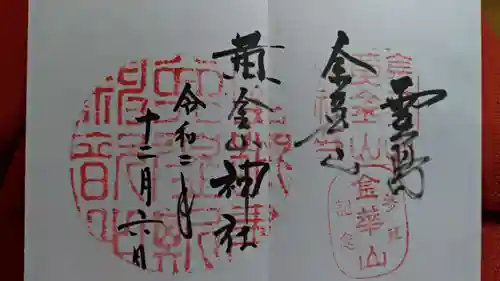 霊島
金華山
黄金山神社
令和二年
十二月六日
参拝
金華山
記念